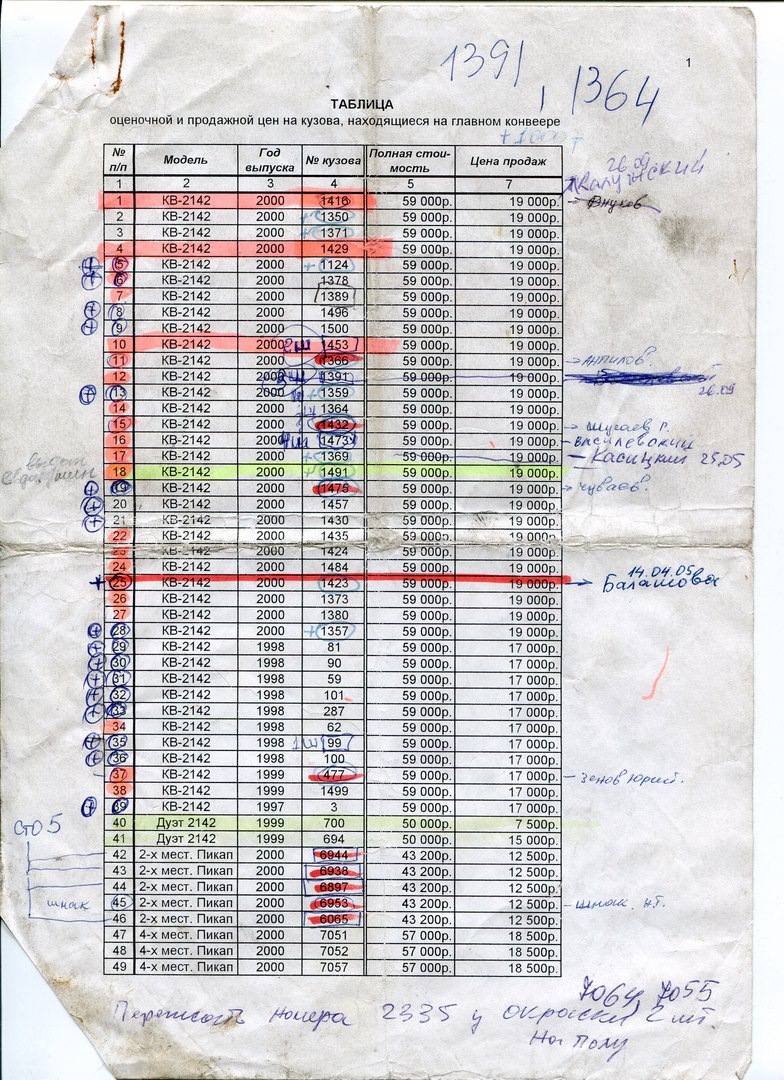 1391, 1364
1
ТАБЛИЦА
оценочной и продажной цен на кузова, находящиеся на главном конвеере
+1000
№ п/п Модель Год выпуска № кузова Полная стои-мость Цена продаж
26.09
Калужский
1 2 3 4 5 7
1 КВ-2142 2000 1416 59 000р. 19 000р. Внуков
2 КВ-2142 2000 1350 59 000р. 19 000р.
3 КВ-2142 2000 1371 59 000р. 19 000р.
4 КВ-2142 2000 1429 59 000р. 19 000р.
+ 5 КВ-2142 2000 + 1124 59 000р. 19 000р.
+ 6 КВ-2142 2000 1378 59 000р. 19 000р.
7 КВ-2142 2000 1389 59 000р. 19 000р.
+ 8 КВ-2142 2000 1496 59 000р. 19 000р.
+ 9 КВ-2142 2000 1500 59 000р. 19 000р.
10 КВ-2142 2000 2ш 1453 59 000р. 19 000р.
11 КВ-2142 2000 1366 59 000р. 19 000р. Антилов
12 КВ-2142 2000 1391 59 000р. 19 000р.
26.09
+ 13 КВ-2142 2000 + 1359 59 000р. 19 000р.
14 КВ-2142 2000 1364 59 000р. 19 000р.
15 КВ-2142 2000 1432 59 000р. 19 000р. Шугаев Р.
16 КВ-2142 2000 1473 59 000р. 19 000р. Василевский
17 КВ-2142 2000 + 1369 59 000р. 19 000р. Касицкий 25.05
18 КВ-2142 2000 1491 59 000р. 19 000р.
+ 19 КВ-2142 2000 1475 59 000р. 19 000р. Чуваев.
+ 20 КВ-2142 2000 1457 59 000р. 19 000р.
+ 21 КВ-2142 2000 1430 59 000р. 19 000р.
22 КВ-2142 2000 1435 59 000р. 19 000р.
23 КВ-2142 2000 1424 59 000р. 19 000р.
24 КВ-2142 2000 1484 59 000р. 19 000р.
14.04.05
25 КВ-2142 2000 1423 59 000р. 19 000р. Балашова
26 КВ-2142 2000 1373 59 000р. 19 000р.
27 КВ-2142 2000 1380 59 000р. 19 000р.
+ 28 КВ-2142 2000 + 1357 59 000р. 19 000р.
+ 29 КВ-2142 1998 81 59 000р. 17 000р.
+ 30 КВ-2142 1998 90 59 000р. 17 000р.
+ 31 КВ-2142 1998 59 59 000р. 17 000р.
+ 32 КВ-2142 1998 101 59 000р. 17 000р.
+ 33 КВ-2142 1998 287 59 000р. 17 000р.
34 КВ-2142 1998 62 59 000р. 17 000р.
+ 35 КВ-2142 1998 1ш 99 59 000р. 17 000р.
+ 36 КВ-2142 1998 100 59 000р. 17 000р.
37 КВ-2142 1999 477 59 000р. 17 000р. Зенов Юрий.
38 КВ-2142 1999 1499 59 000р. 17 000р.
+ 39 КВ-2142 1997 3 59 000р. 17 000р.
40 Дуэт 2142 1999 700 50 000р. 7 500р.
СТО 5
41 Дуэт 2142 1999 694 50 000р. 15 000р.
42 2-х мест. Пикап 2000 6944 43 200р. 12 500р.
43 2-х мест. Пикап 2000 6938 43 200р. 12 500р.
44 2-х мест. Пикап 2000 6897 43 200р. 12 500р.
шнак 45 2-х мест. Пикап 2000 6953 43 200р. 12 500р. Шнак Н.Г.
46 2-х мест. Пикап 2000 6065 43 200р. 12 500р.
47 4-х мест. Пикап 2000 7051 57 000р. 18 500р.
48 4-х мест. Пикап 2000 7052 57 000р. 18 500р.
49 4-х мест. Пикап 2000 7057 57 000р. 18 500р.
7064, 7055
Переписать номера 2335 у окраски 2 шт.
На полу